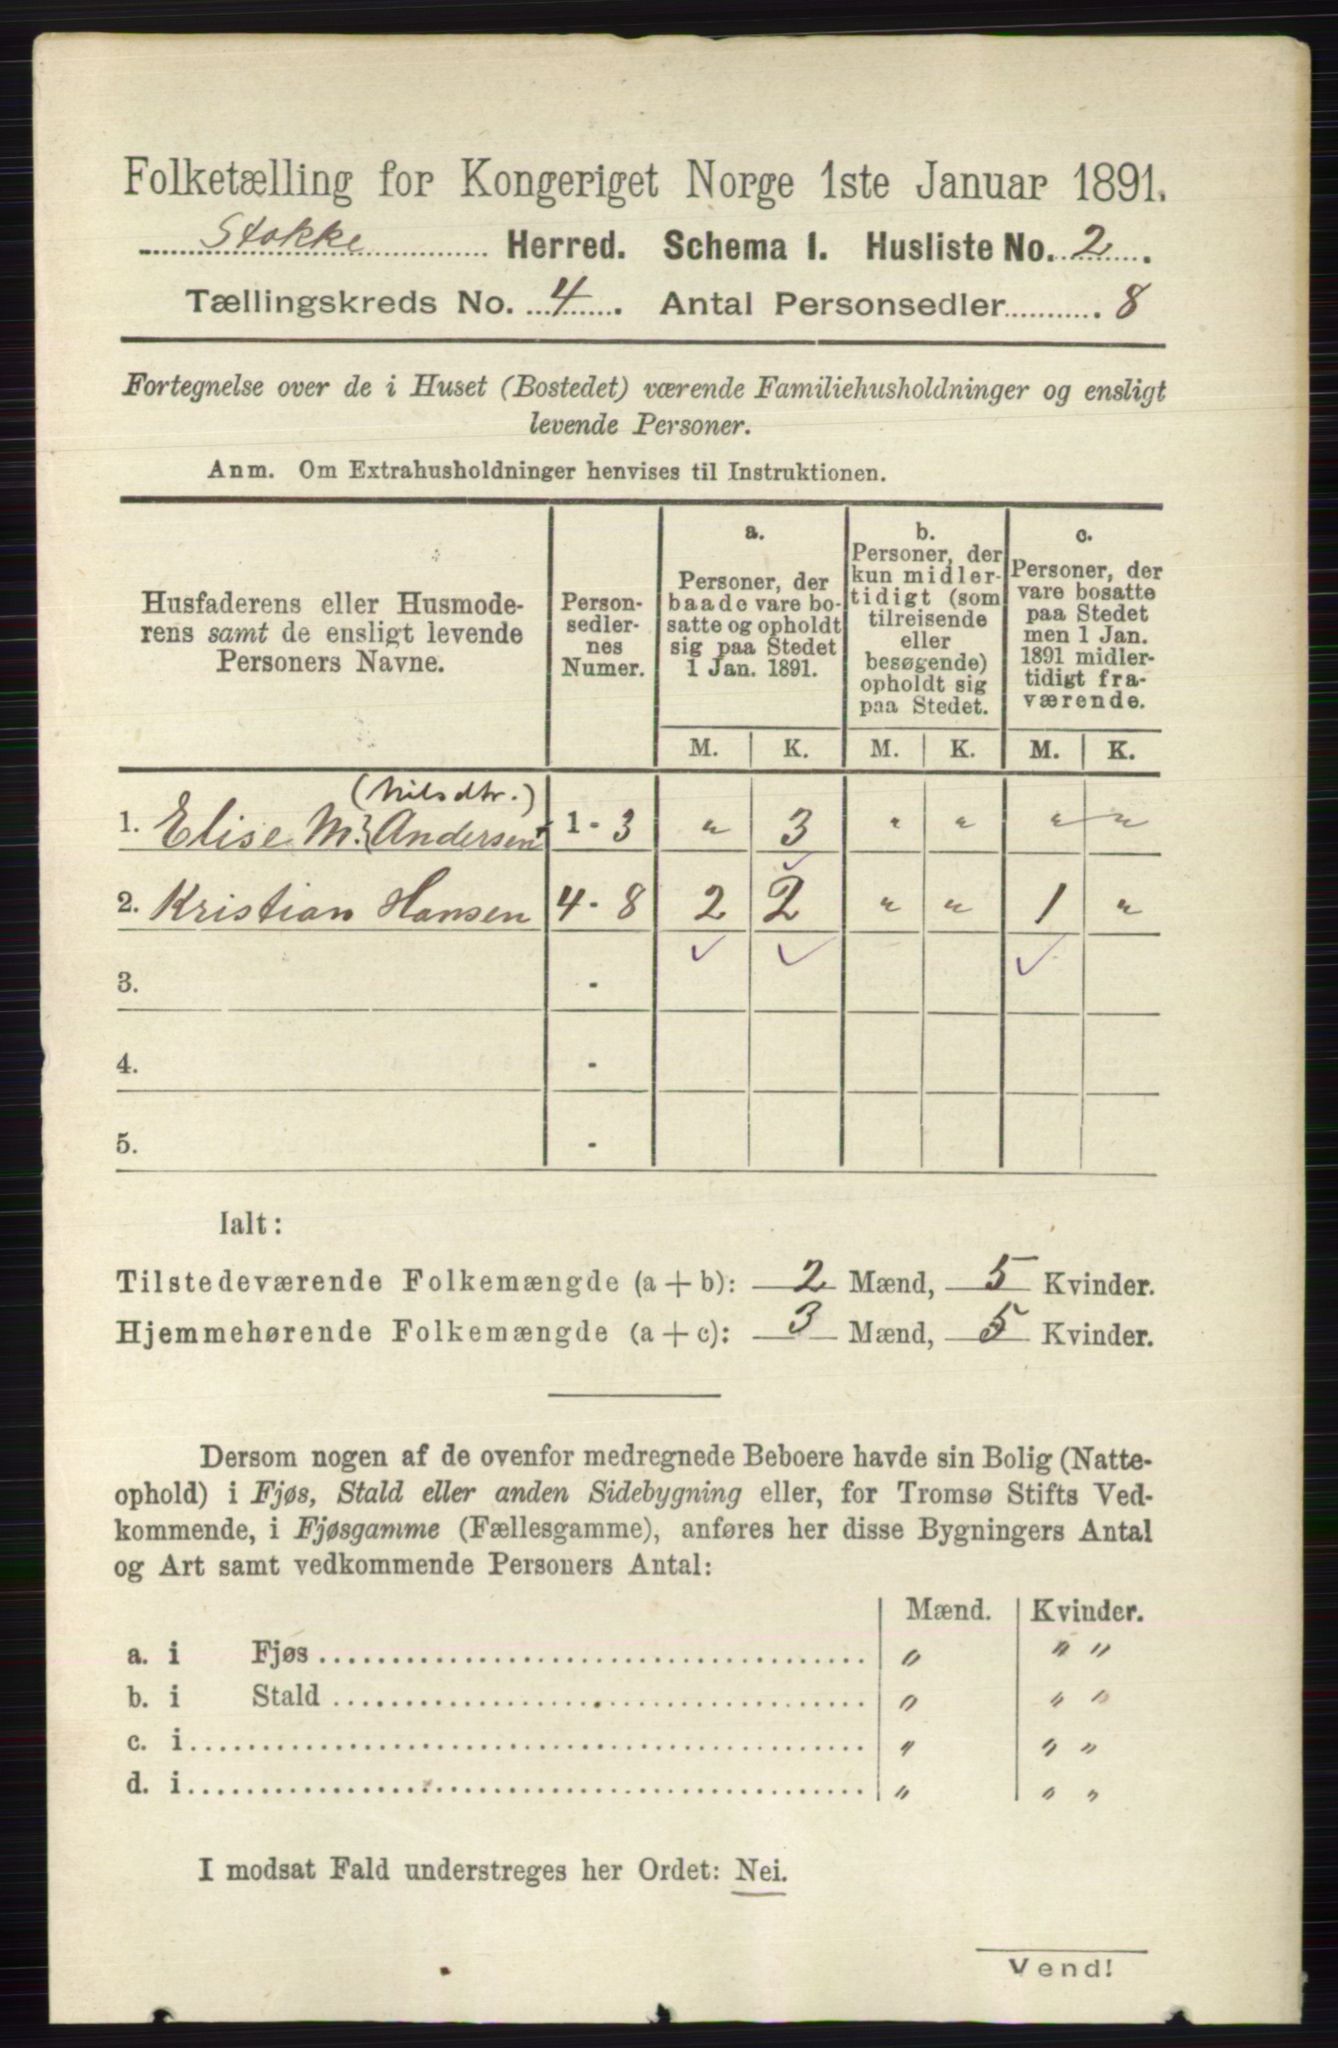 Folketælling for Kongeriget Norge 1ste Januar 1891.
Stokke Herred. Schema I. Husliste No. 2.
Tællingskreds No. 4. Antal Personsedler 8
Fortegnelse over de i Huset (Bostedet) værende Familiehusholdninger og ensligt
levende Personer.
Anm. Om Extrahusholdninger henvises til Instruktionen.
Husfaderens eller Husmode-
rens samt de ensligt levende
Personers Navne.
Person-
sedler-
nes
Numer.
a.
Personer, der
baade vare bo-
satte og opholdt
sig paa Stedet
1 Jan. 1891.
b.
Personer, der
kun midler-
tidigt (som
tilreisende
eller
besøgende)
opholdt sig
paa Stedet.
c.
Personer, der
vare bosatte
paa Stedet
men 1 Jan.
1891 midler-
tidigt fra-
værende.
M. K. M. K. M. K.
(Nilsdtr.)
1. Elise M. Andersen 1 - 3 „ 3 „ „ „ „
2. Kristian Hansen 4 - 8 2 2 „ „ 1 „
3. -
4. -
5. -
Ialt:
Tilstedeværende Folkemængde (a + b): 2 Mænd, 5 Kvinder.
Hjemmehørende Folkemængde (a + c): 3 Mænd, 5 Kvinder.
Dersom nogen af de ovenfor medregnede Beboere havde sin Bolig (Natte-
ophold) i Fjøs, Stald eller anden Sidebygning eller, for Tromsø Stifts Ved-
kommende, i Fjøsgamme (Fællesgamme), anføres her disse Bygningers Antal
og Art samt vedkommende Personers Antal:
Mænd. Kvinder.
a. i Fjøs „ „ „
b. i Stald „ „ „
c. i „ „ „
d. i „ „ „
I modsat Fald understreges her Ordet: Nei.
Vend!